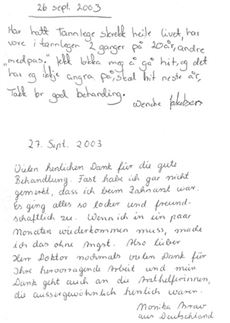 26 sept. 2003
Har hatt Tannlege skrekk heile livet, har
vore i tannlegen 2 ganger på 20 år, andre
"medpas." fekk lokka meg å gå hit, og det
har eg ikkje angra på, skal hit neste år,
Takk for god behandling.
Wenche Jakobsen
27. Sept. 2003
Vielen herzlichen Dank für die gute
Behandlung. Fast habe ich gar nicht
gemerkt, dass ich beim Zahnarzt war.
Es ging alles so locker und freund-
schaftlich zu. Wenn ich in ein paar
Monaten wiederkommen muss, mache
ich das ohne Angst. Also lieber
Herr Doktor nochmals vielen Dank für
Ihre hervorragende Arbeit und mein
Dank geht auch an die Arzthelferinnen,
die aussergewöhnlich herzlich waren.
Monika
aus Deutschland